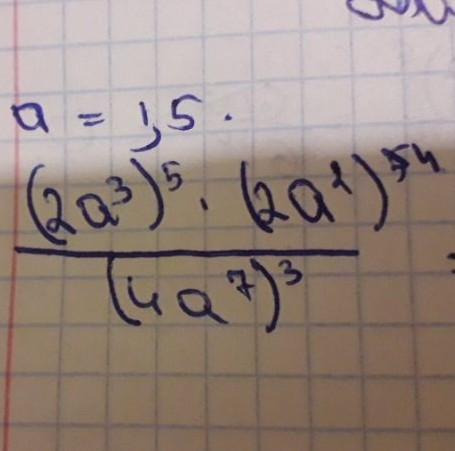 a = 1,5.
(2a³)⁵ · (2a²)⁴
(4a⁷)³